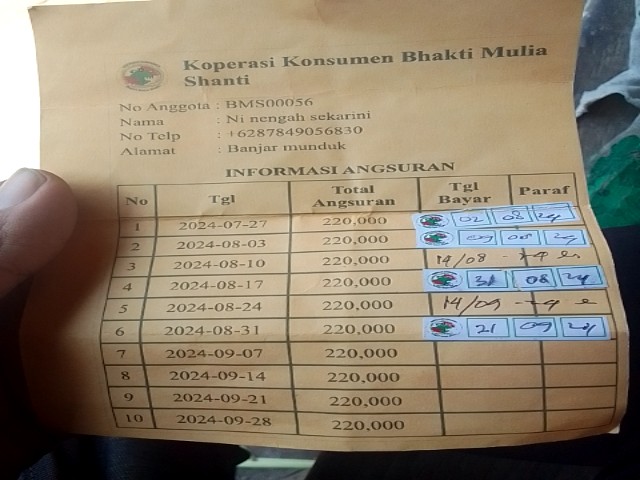 Koperasi Konsumen Bhakti Mulia
Shanti
No Anggota : BMS00056
Nama : Ni nengah sekarini
No Telp : +6287849056830
Alamat : Banjar munduk
INFORMASI ANGSURAN
No Tgl Total Angsuran Tgl Bayar Paraf
1 2024-07-27 220,000 02 08 24
2 2024-08-03 220,000 09 08 24
3 2024-08-10 220,000 14/08
4 2024-08-17 220,000 31 08 24
5 2024-08-24 220,000 14/09
6 2024-08-31 220,000 21 09 24
7 2024-09-07 220,000
8 2024-09-14 220,000
9 2024-09-21 220,000
10 2024-09-28 220,000